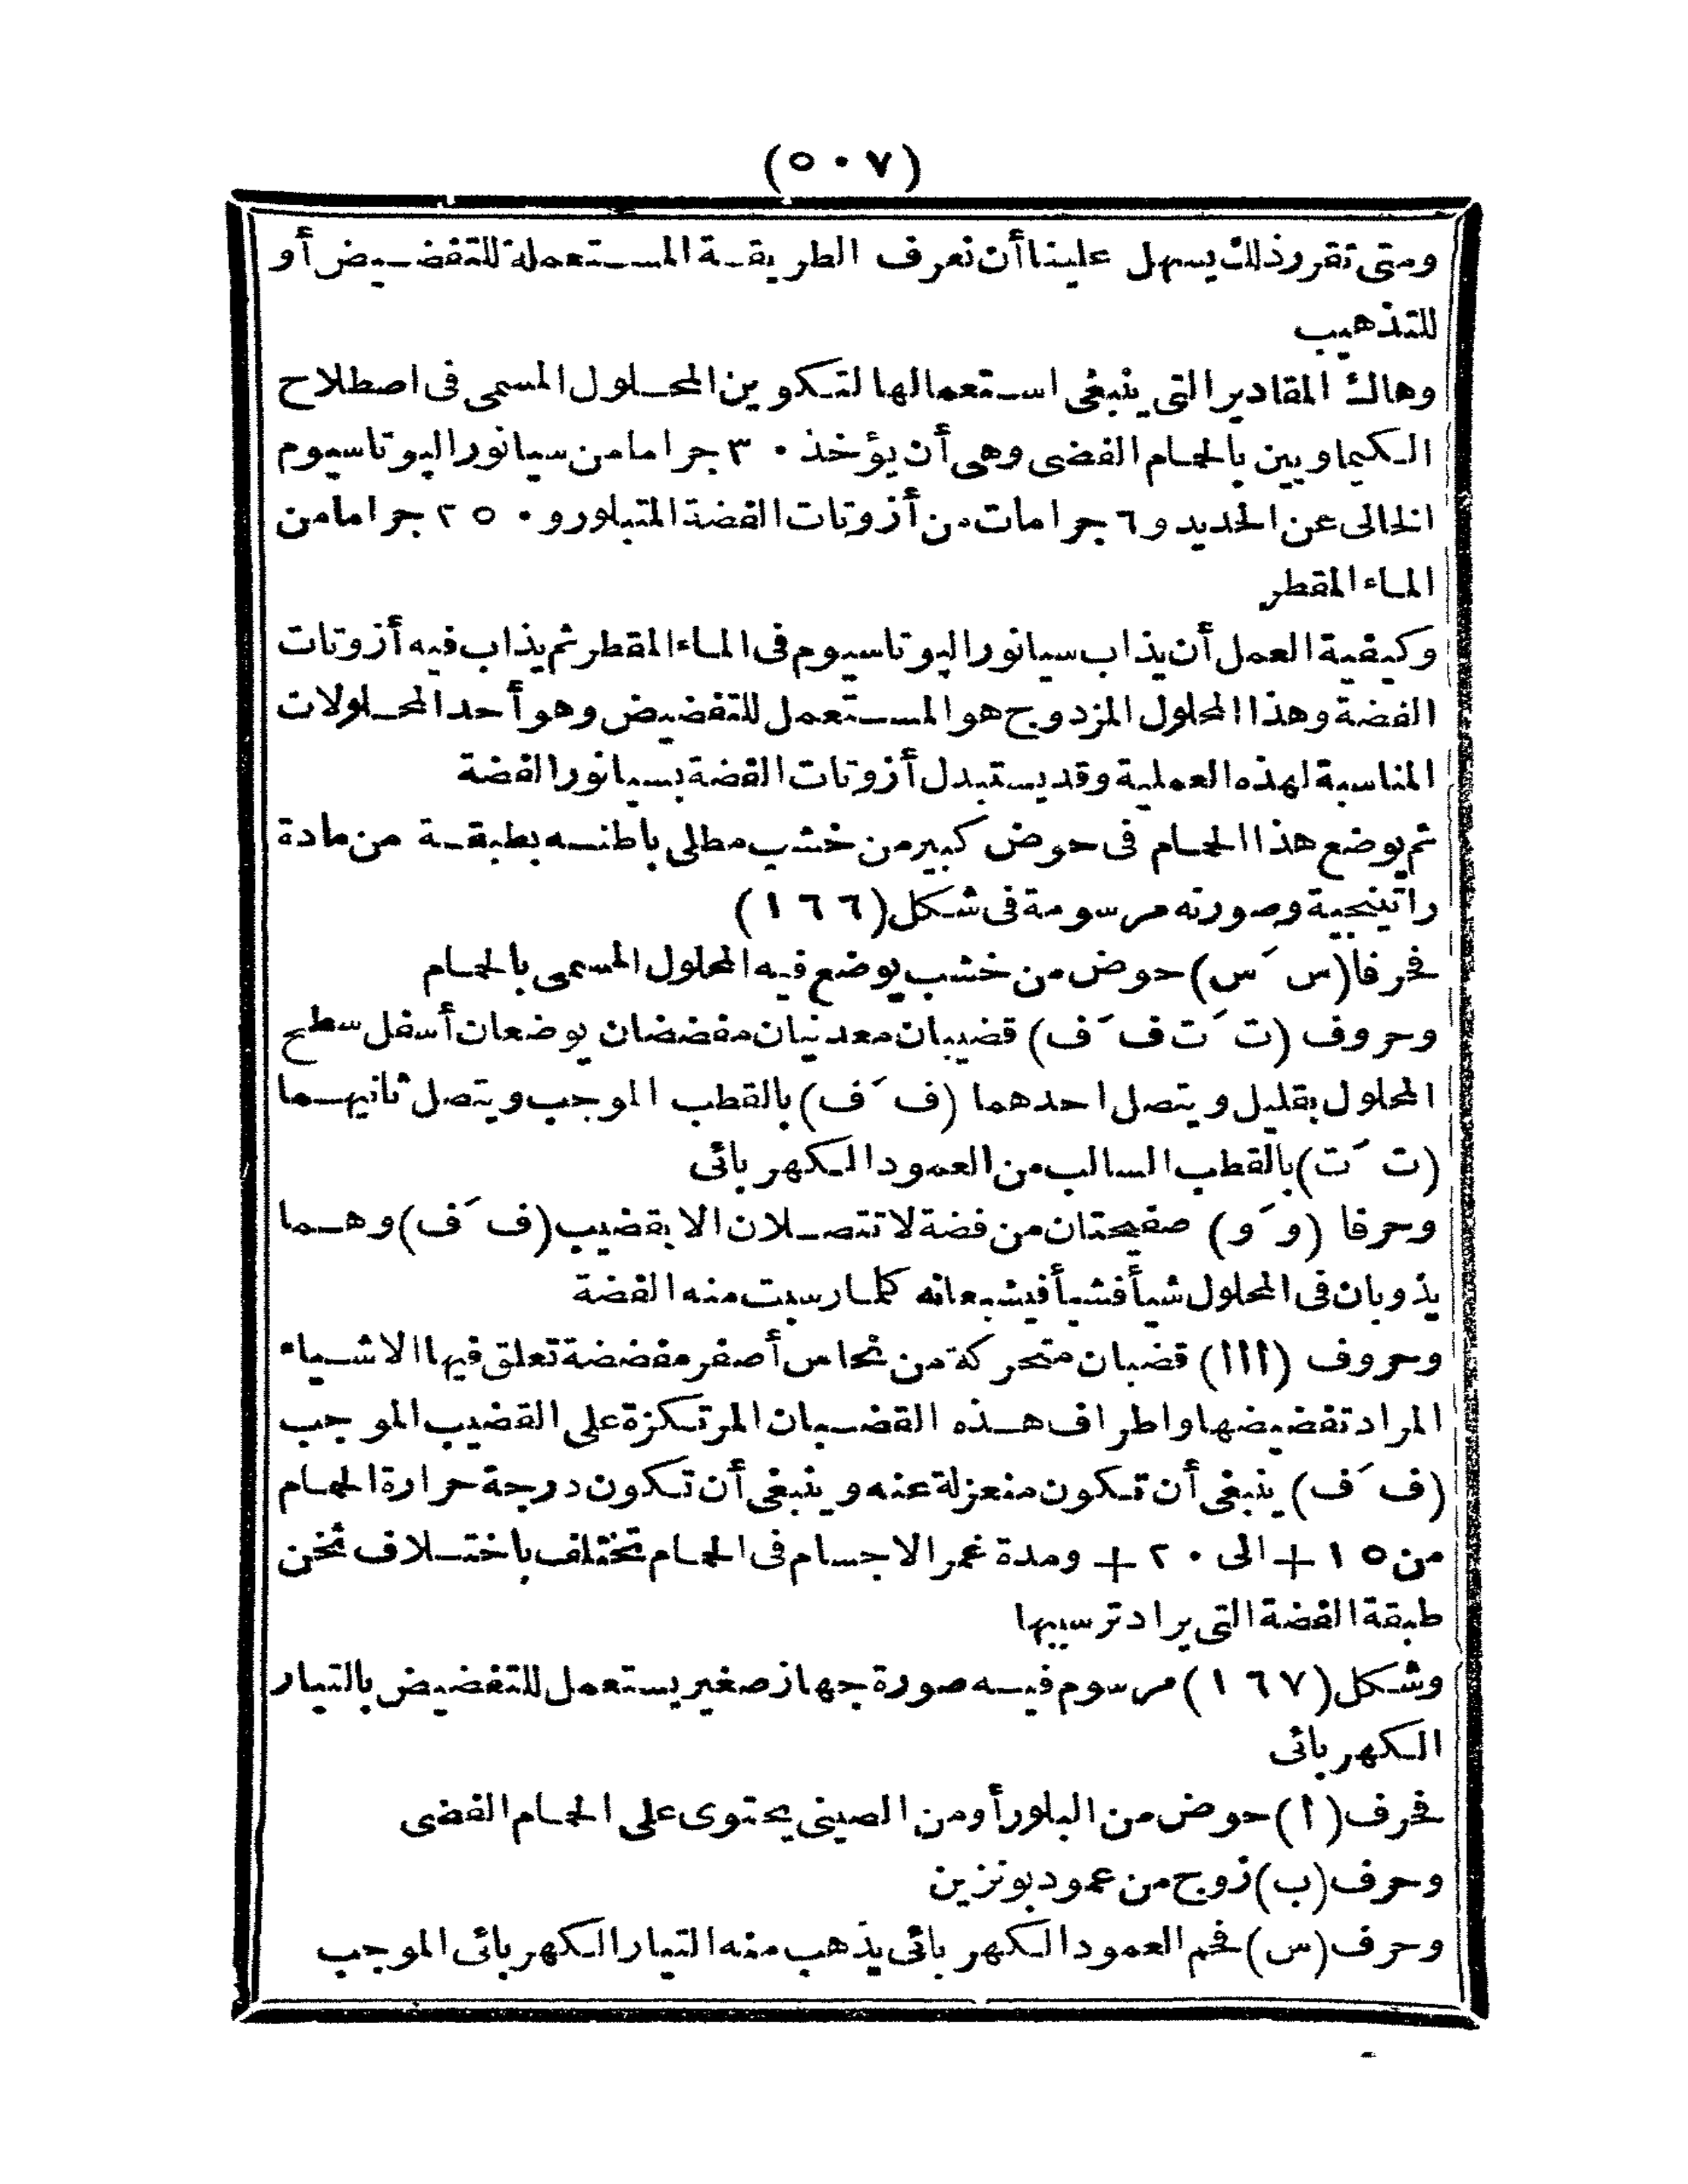 (٥٠٧)
ومتى تقرر ذلك يسهل علينا أن نعرف الطريقة المستعملة للتفضيض أو
للتذهيب
وهاك المقادير التى ينبغى استعمالها لتكوين المحلول المسمى فى اصطلاح
الكيماويين بالحمام الفضى وهى أن يؤخذ ٣٠ جراما من سيانور البوتاسيوم
الخالى عن الحديد و٦ جرامات من أزوتات الفضة المتبلور و٢٥٠ جراما من
الماء المقطر
وكيفية العمل أن يذاب سيانور البوتاسيوم فى الماء المقطر ثم يذاب فيه أزوتات
الفضة وهذا المحلول المزدوج هو المستعمل للتفضيض وهو أحد المحلولات
المناسبة لهذه العملية وقد يستبدل أزوتات الفضة بسيانور الفضة
ثم يوضع هذا الحمام فى حوض كبير من خشب مطلى باطنه بطبقة من مادة
راتينجية وصورته مرسومة فى شكل (١٦٦)
فحرفا (س َ س) حوض من خشب يوضع فيه المحلول المسمى بالحمام
وحروف (ت َ ت ف َ ف) قضيبان معدنيان مفضضان يوضعان أسفل سطح
المحلول بقليل ويتصل احدهما (ف َ ف) بالقطب الموجب ويتصل ثانيهما
(ت َ ت) بالقطب السالب من العمود الكهربائى
وحرفا (و َ و) صفيحتان من فضة لا تتصلان الا بقضيب (ف َ ف) وهما
يذوبان فى المحلول شيأ فشيأ فيشبعانه كلما رسبت منه الفضة
وحروف (ااا) قضبان متحركة من نحاس أصفر مفضضة تعلق فيها الاشياء
المراد تفضيضها واطراف هذه القضبان المرتكزة على القضيب الموجب
(ف َ ف) ينبغى أن تكون منعزلة عنه وينبغى أن تكون درجة حرارة الحمام
من ١٥ + الى ٢٠ + ومدة غمر الاجسام فى الحمام تختلف باختلاف ثخن
طبقة الفضة التى يراد ترسيبها
وشكل (١٦٧) مرسوم فيه صورة جهاز صغير يستعمل للتفضيض بالتيار
الكهربائى
فحرف (ا) حوض من البلور أو من الصينى يحتوى على الحمام الفضى
وحرف (ب) زوج من عمود بونزين
وحرف (س) فحم العمود الكهربائى يذهب منه التيار الكهربائى الموجب